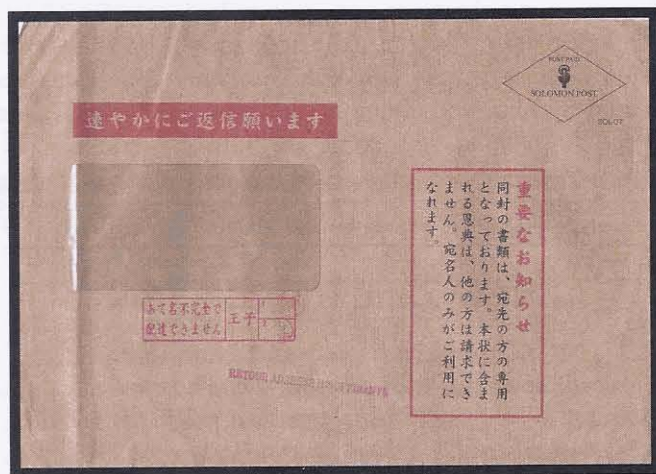 POST PAID
SOLOMON POST
SOL-07
速やかにご返信願います
重要なお知らせ
同封の書類は、宛先の方の専用
となっております。本状に含ま
れる恩典は、他の方は請求でき
ません。宛名人のみがご利用に
なれます。
あて名不完全で
配達できません
王子
RETOUR ADRESSE INSUFFISANTE